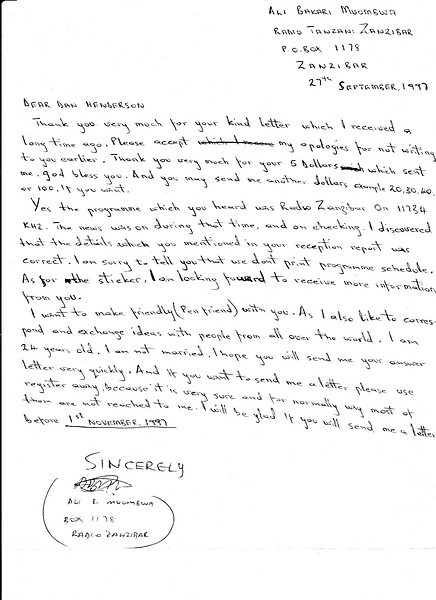 ALI BAKARI MUOMBWA
RADIO TANZANI ZANZIBAR
P.O.BOX 1178
ZANZIBAR
27th SEPTEMBER, 1997
DEAR DAN HENDERSON
Thank you very much for your kind letter which I received a
long time ago. Please accept my apologies for not writing
to you earlier. Thank you very much for your 5 Dollars which sent
me. god bless you. And you may send me another dollars example 20,30,40,
or 100, If you want.
Yes the programme which you heard was Radio Zanzibar On 11734
KHZ. The news was on during that time, and on checking. I discovered
that the details which you mentioned in your reception report was
correct. I am sorry to tell you that we don't print programme schedule.
As for the sticker, I am looking foward to receive more information
from you.
I want to make friendly (Pen friend) with you. As I also like to corres-
pond and exchange ideas with people from all over the world. I am
24 years old, I am not married, I hope you will send me your answer
letter very quickly. And If you want to send me a letter please use
register away, because it is very sure and for normally way most of
them are not reached to me. I will be glad If you will send me a letter
before 1st NOVEMBER, 1997
SINCERELY
ALI B. MUOMBWA
BOX 1178
RADIO ZANZIBAR